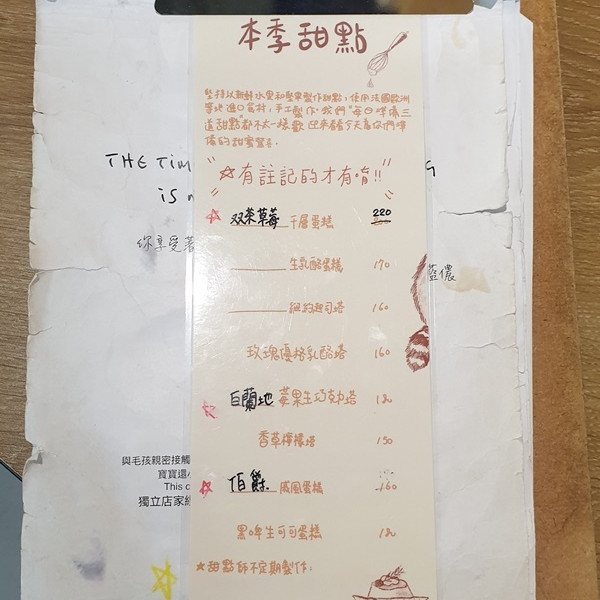 本季甜點
堅持以新鮮水果和堅果製作甜點，使用法國歐洲
等地進口食材，手工製作。我們"每日準備三
道甜點"都不太一樣歡迎來看看今天為你們準
備的甜蜜驚喜。
☆有註記的才有唷!!
THE Tim G
is n
你享受著
藍儂
☆ 双茶草莓 千層蛋糕 220
______生乳酪蛋糕 170
______紐約起司塔 160
玫瑰優格乳酪塔 160
☆ 白蘭地 莓果生巧克力塔 180
香草檸檬塔 150
☆ 伯爵 戚風蛋糕 160
黑啤生可可蛋糕 180
★甜點師不定期製作：
與毛孩親密接觸
寶寶還小
This c
獨立店家經